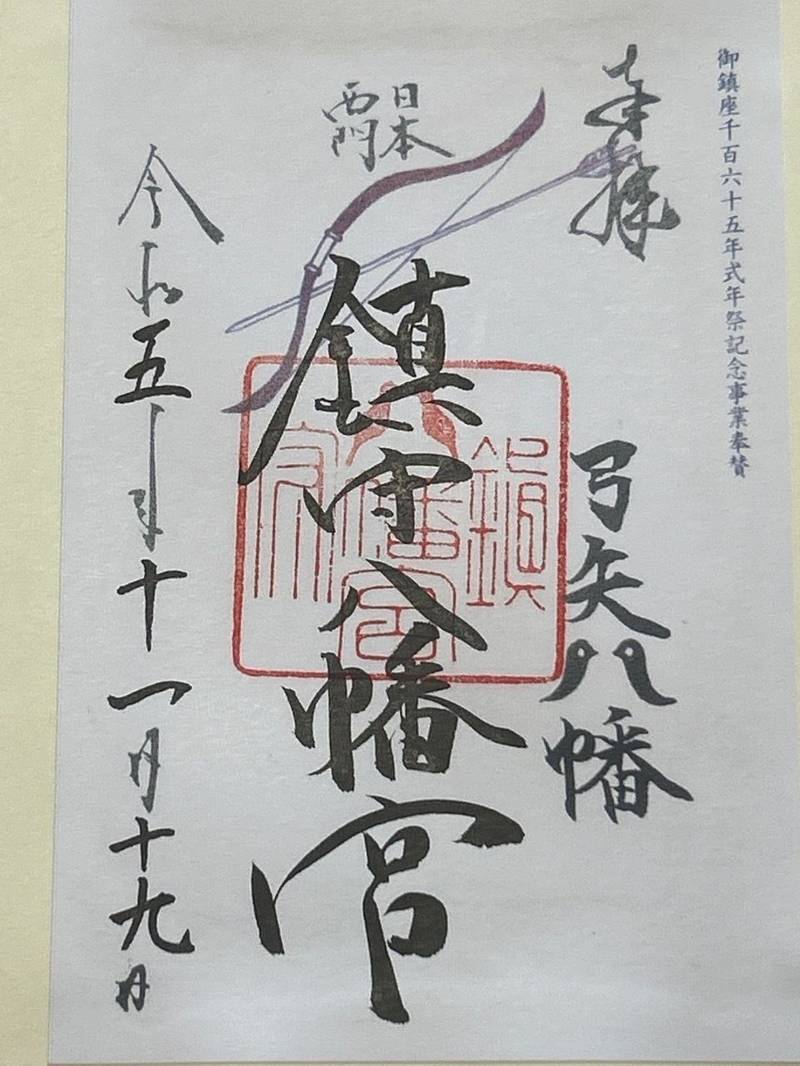 御鎮座千百六十五年式年祭記念事業奉賛
奉拝
弓矢八幡
日本
西門
鎮守八幡宮
鎮守
八幡宮
令和五年十一月十九日